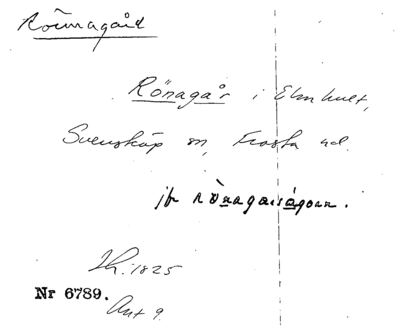 Rönnagård
Rönagår i Elmhult,
Svensköp sn, Frosta hd.
jfr rönagarsågoan.
Lh. 1825
Nr 6789.
Ant 9.